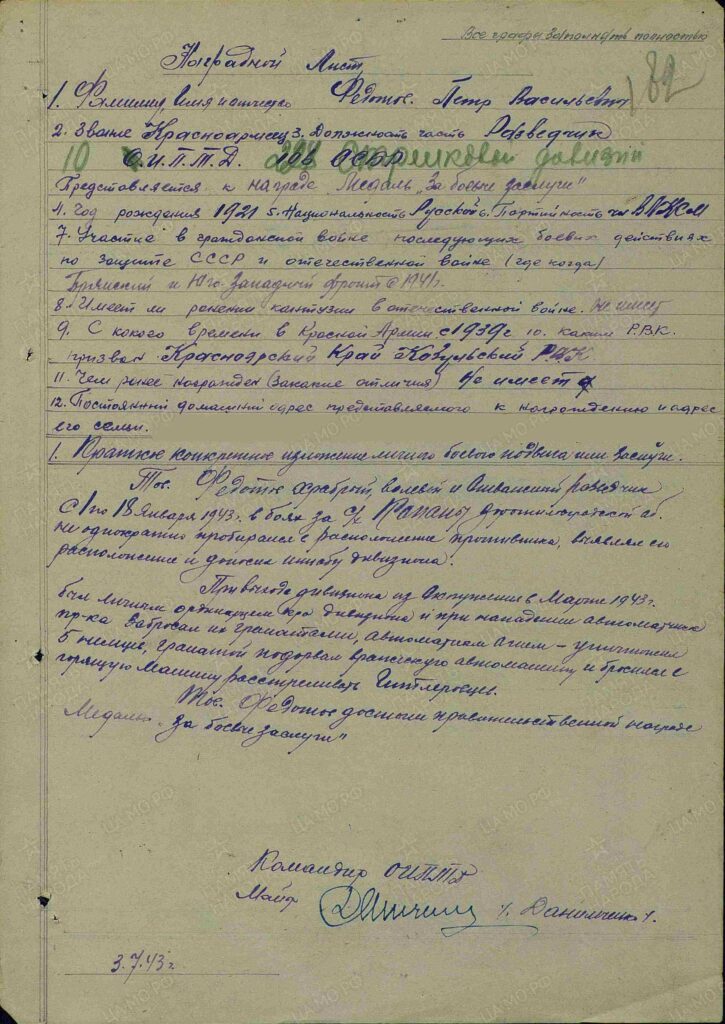 Все графы заполнять полностью
Наградной Лист
182
1. Фамилия Имя и отчество Федотов Петр Васильевич
2. Звание Красноармеец 3. Должность часть Разведчик
10 О.И.П.Т.Д. стрелковой дивизии
Представляется к награде Медаль „За боевые заслуги"
4. Год рождения 1921 5. Национальность Русский 6. Партийность чл ВЛКСМ
7. Участие в гражданской войне последующих боевых действиях
по защите СССР и отечественной войне (где когда)
Брянский и Юго-Западный фронт с 1941г.
8. Имеет ли ранения контузии в отечественной войне. Не имеет
9. С какого времени в Красной Армии с 1939г 10. каким Р.В.К.
призван Красноярский Край Козульский РВК
11. Чем ранее награжден (за какие отличия) Не имеет
12. Постоянный домашний адрес представляемого к награждению и адрес
его семьи.
1. Краткое конкретное изложение личного боевого подвига или заслуги.
Тов. Федотов храбрый, волевой и разведчик
С 1 по 18 Января 1943г. в боях за с/х Ворошиловградской об.
неоднократно пробирался в расположение противника, выявлял его
расположение и доносил штабу дивизиона.
При выходе дивизиона из Окружения в Марте 1943г.
был личным ординарцем к-ра дивизиона и при нападении автоматчиков
пр-ка забросал их гранатами, автоматным огнем – уничтожил
5 немцев, гранатой подорвал вражескую автомашину и бросился в
горящую Машину расстреливать Гитлеровцев.
Тов. Федотов достоин правительственной награде
Медаль „За боевые заслуги"
Командир ОИПТД
Майор /Данильченко/.
3.7.43г.